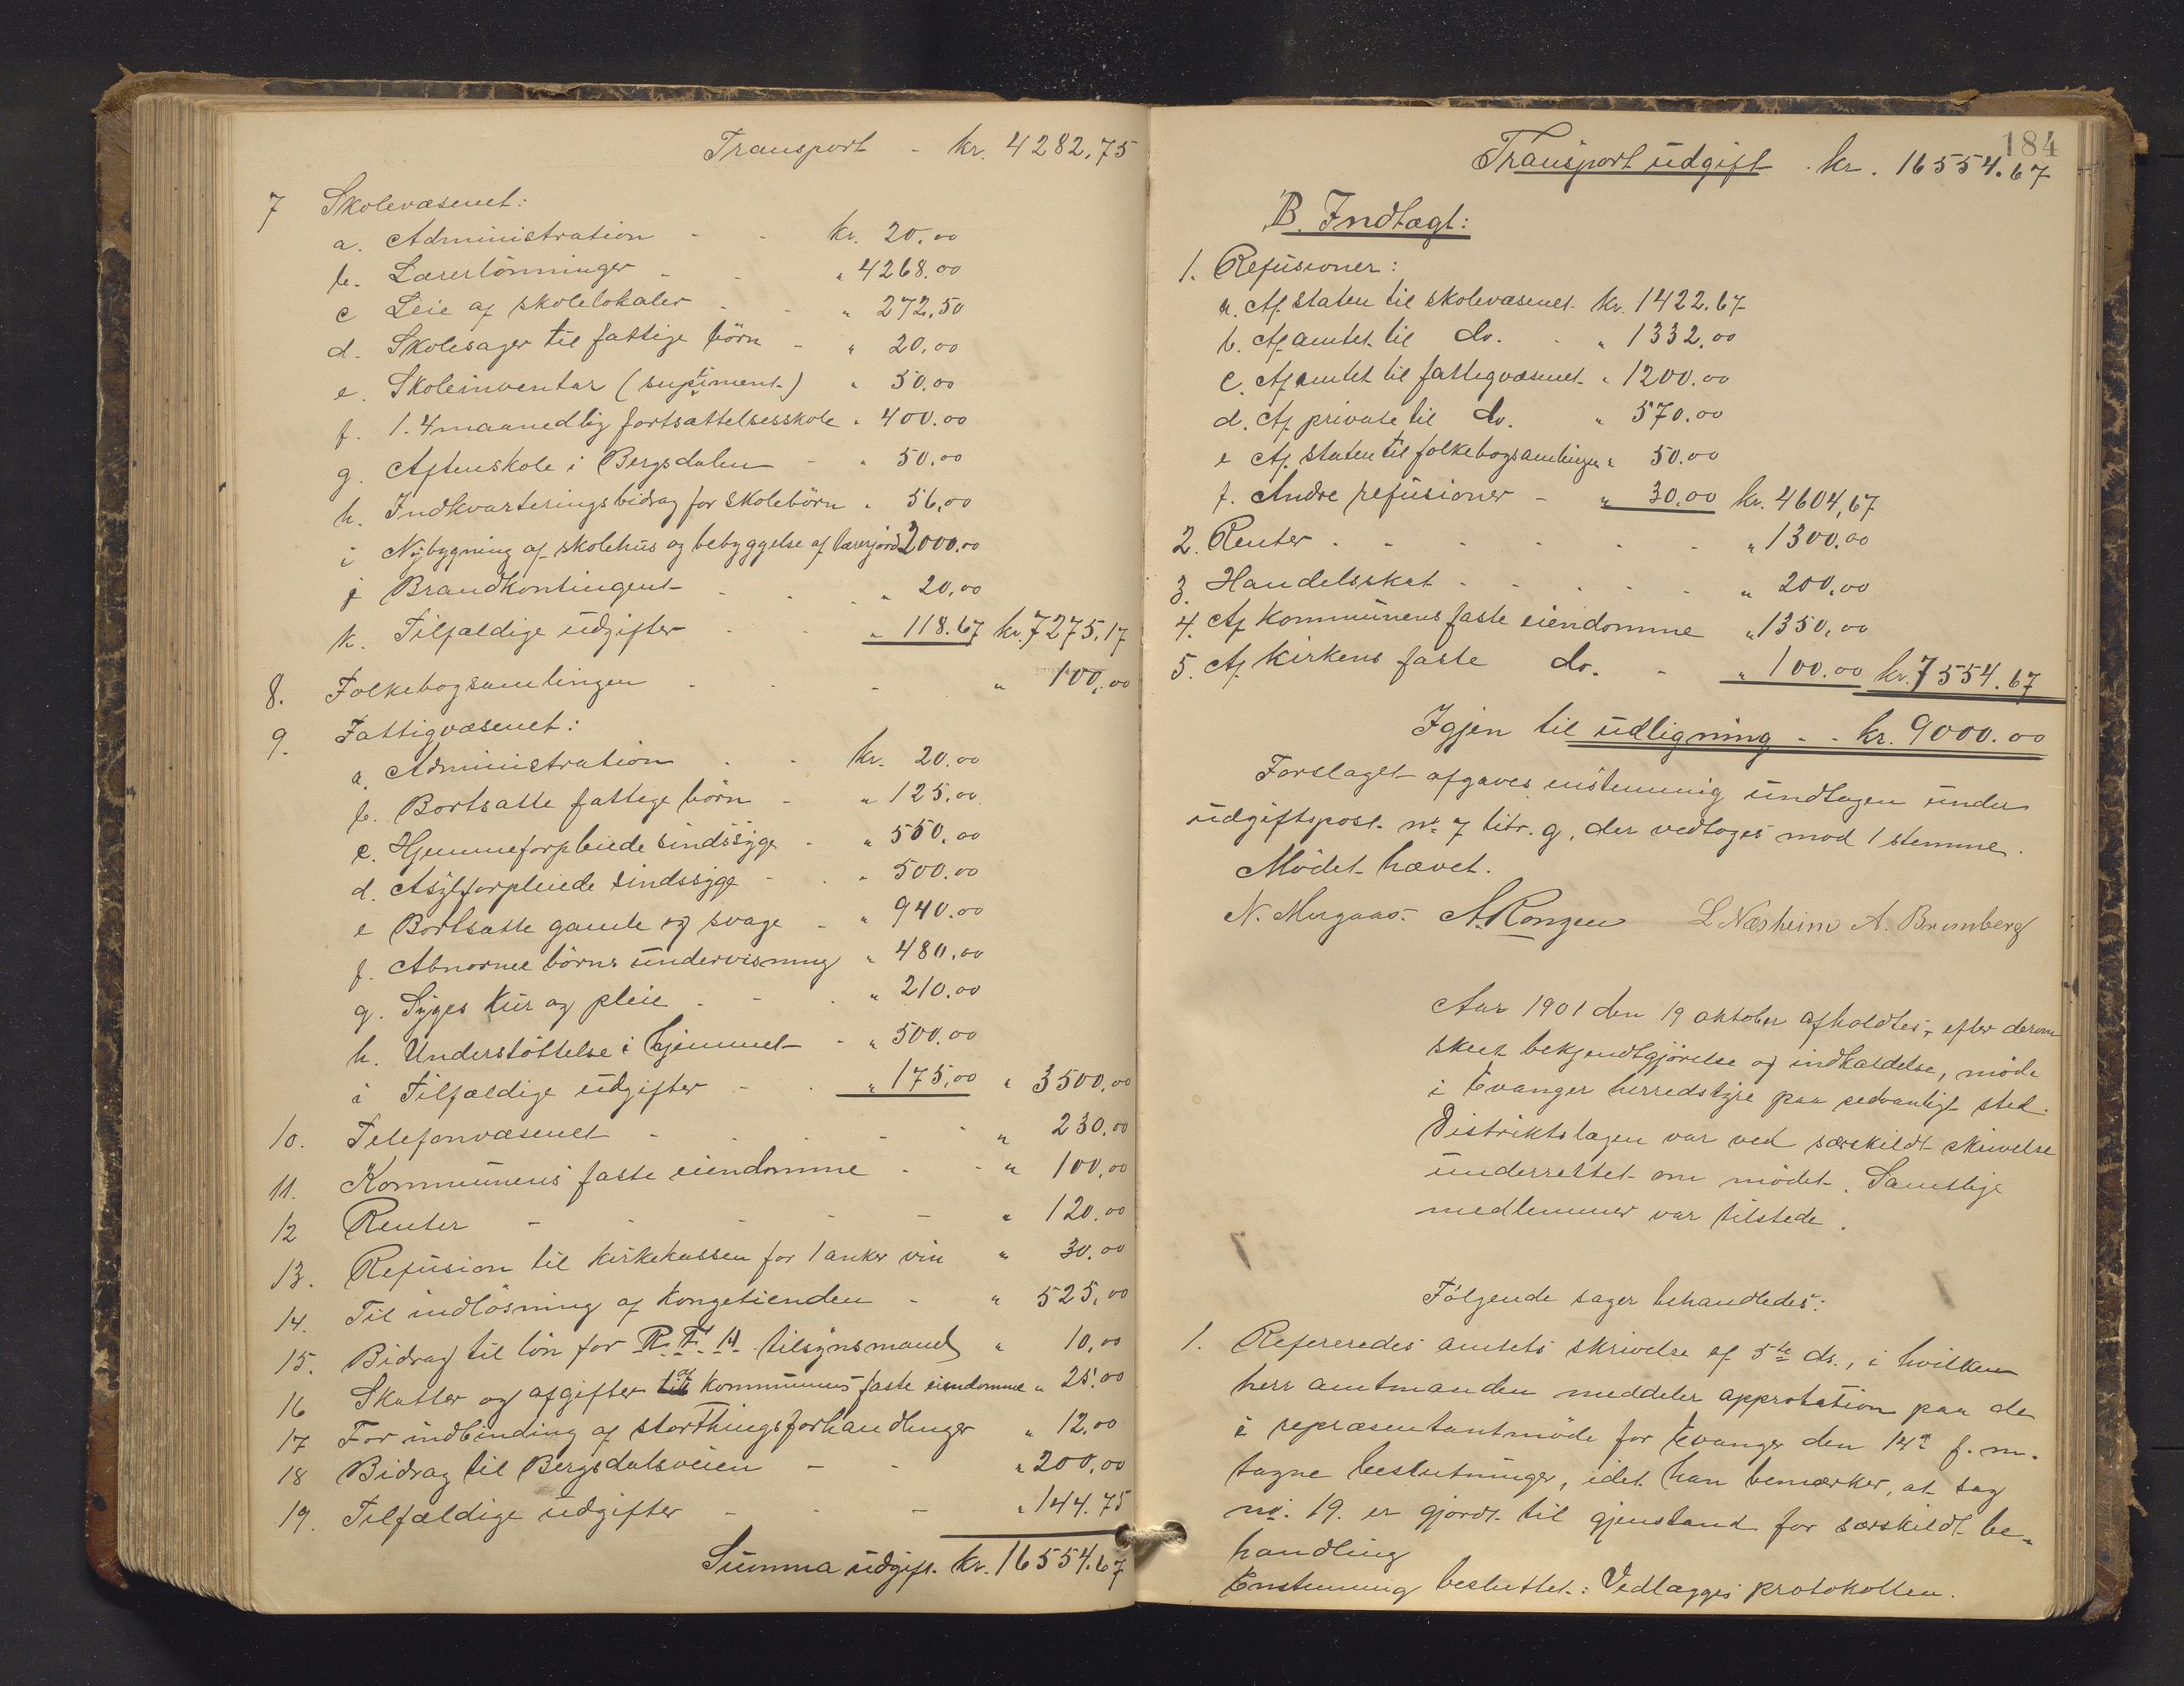 Transport - kr. 4282,75
7 Skolevæsenet:
a. Administration - - kr. 20,00
b. Lærerlönninger - - " 4268.00
c Leie af skolelokaler - - " 272,50
d. Skolesager til fattige börn - " 20,00
e. Skoleinventar (suppliment.) " 50.00
f. 1. 4maanedlig fortsættelsesskole " 400.00
g. Aftenskole i Bergsdalen - " 50.00
h. Indkvarteringsbidrag for skolebörn " 56,00
i Nybygning af skolehus og bebyggelse af lærerjord 2000.00
j Brandkontingent - - " 20,00
k. Tilfældige udgifter - - " 118.67 kr. 7275,17
8. Folkebogsamlingen - - - " 100,00
9. Fattigvæsenet:
a. Administration - - kr. 20.00
b. Bortsatte fattige börn - " 125,00
c. Hjemmeforpleiede sindssyge - " 550,00
d. Asylforpleiede sindssyge - - " 500.00
e Bortsatte gamle og svage - " 940.00
f. Abnorme börns undervisning " 480,00
g. Syges kur og pleie - - - " 210.00
h. Understöttelse i hjemmet - " 500.00
i Tilfældige udgifter - - " 175,00 " 3500,00
10. Telefonvæsenet - - - - - " 230,00
11. Kommunens faste eiendomme - - " 100,00
12 Renter - - - - - " 120.00
13. Refusion til kirkekassen for 1 anker vin " 30.00
14. Til indlösning af kongetienden - " 525,00
15. Bidrag til lön for R. F. H. tilsynsmand " 10,00
16 Skatter og afgifter af kommunens faste eiendomme " 25.00
17 For indbinding af storthingsforhandlinger " 12,00
18 Bidrag til Bergsdalsveien - - " 200,00
19. Tilfældige udgifter - - - " 144.75
Summa udgift. kr. 16554.67
184
Transport udgift . kr. 16554.67
B. Indtægt:
1. Refusioner:
a. Af staten til skolevæsenet. kr. 1422.67
b. Af amtet til do. - " 1332,00
c. Af amtet til fattigvæsenet " 1200.00
d. Af private til do. " 570.00
e Af staten til folkebogsamlingen " 50.00
f. Andre refusioner - " 30,00 kr. 4604,67
2. Renter - - - - - - " 1300,00
3. Handelsskat - - - - - " 200,00
4. Af kommunens faste eiendomme " 1350,00
5. Af kirkens faste do. - " 100.00 kr. 7554.67
Igjen til udligning - - kr. 9000.00
Forslaget afgaves enstemmig undtagen under
udgiftspost. no 7 litr. g. der vedtoges mod 1 stemme.
Mödet hævet.
N. Mugaas. A. Rongen L Næsheim A. Brunborg
Aar 1901 den 19 oktober afholdtes, efter derom
skeet bekjendtgjörelse og indkaldelse, möde
i Evanger herredstyre paa sedvanligt sted.
Distriktslægen var ved særskildt skrivelse
underrettet om mödet. Samtlige
medlemmer var tilstede.
Fölgende sager behandledes:
1. Refereredes amtets skrivelse af 5te ds., i hvilken
herr amtmanden meddeler approbation paa de
i repræsentantmöde for Evanger den 14de f. m.
tagne beslutninger, idet han bemærker, at sag
no. 19. er gjordt til gjenstand for særskildt be-
handling
Enstemmig besluttet: Vedlægges protokollen.